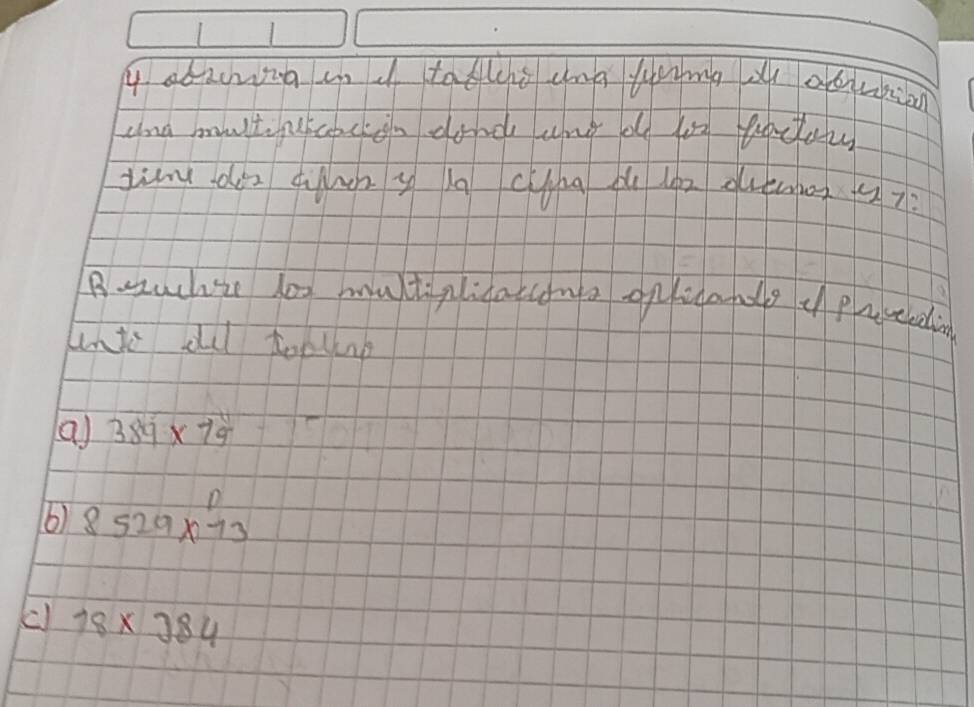 4 observa en el tablero una forma de abreviar
una multiplicación donde uno de los factores
tiene dos cifras y la cifra de las decenas es 7:
Resuelve las multiplicaciones aplicando el procedim
iento del tablero
a) 384 x 79
b) 8529 x 73
c) 78 x 384